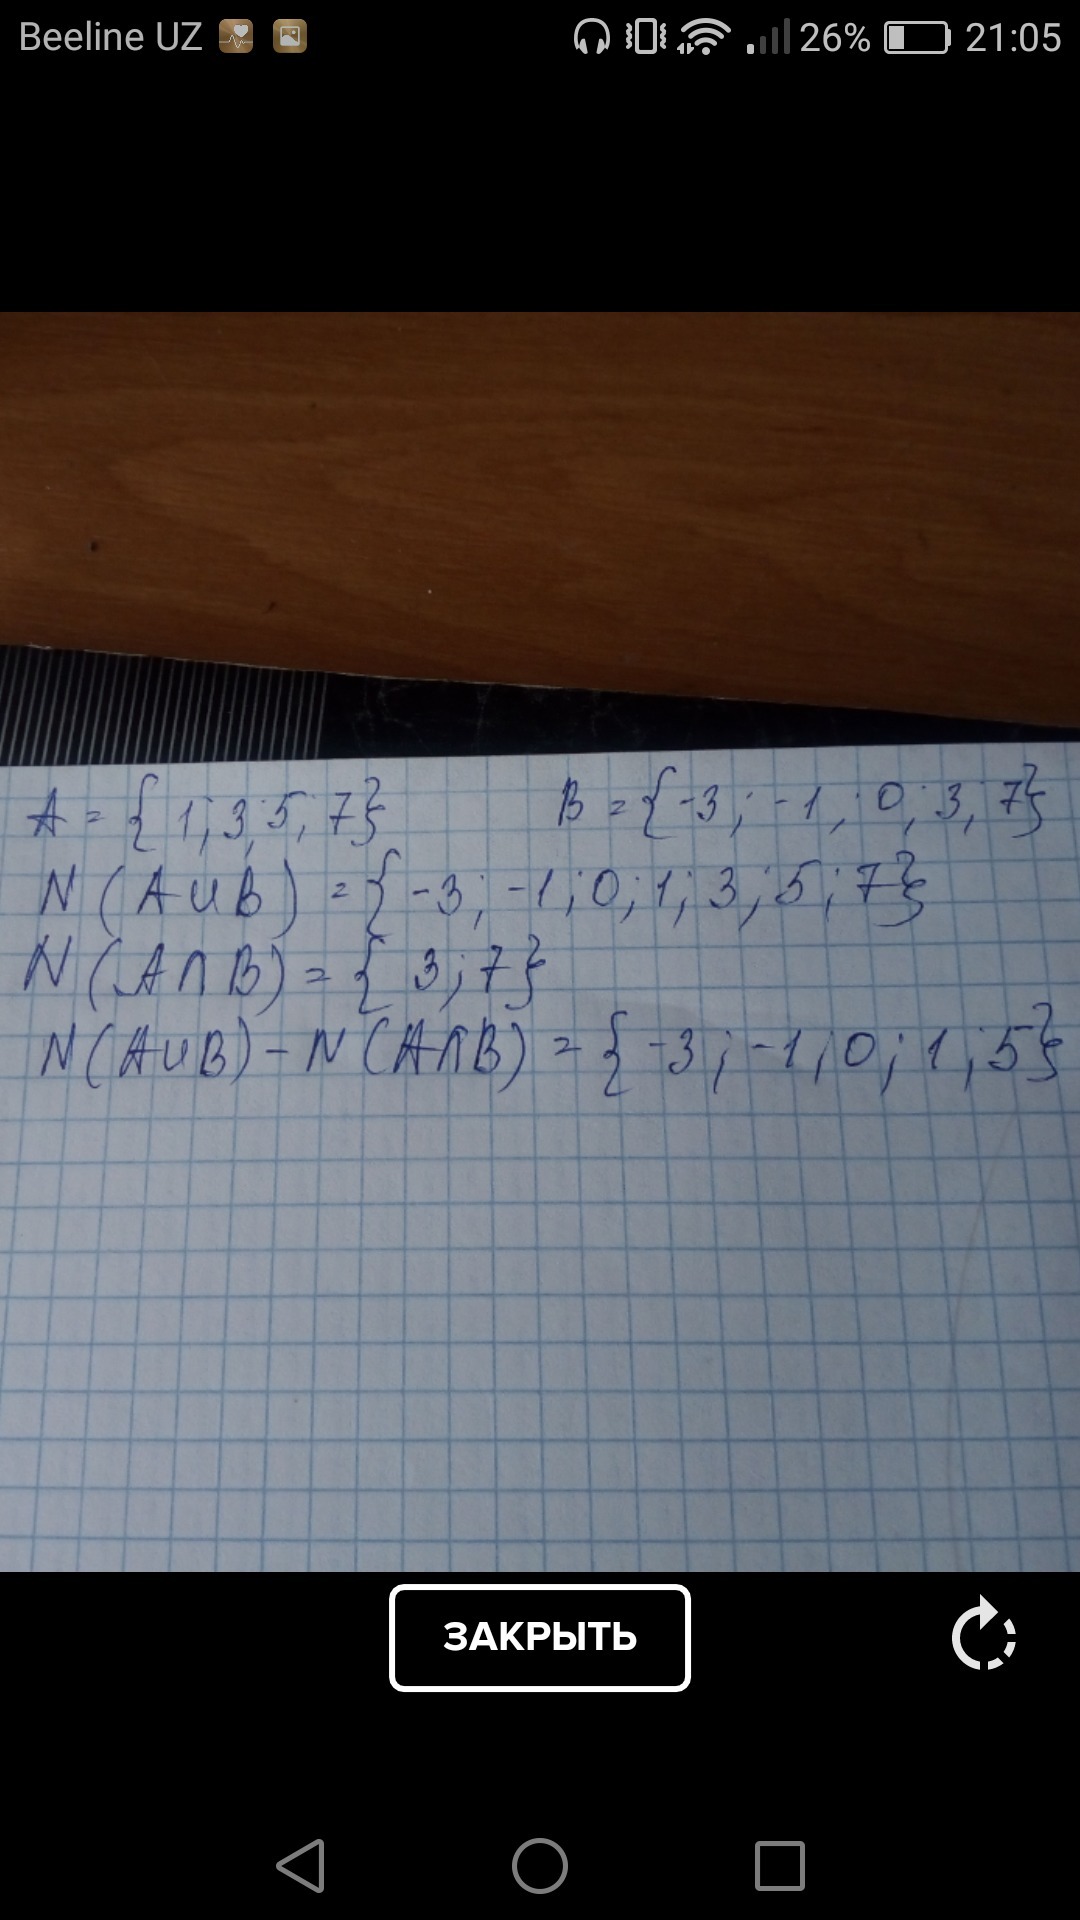 Beeline UZ 26% 21:05
A = { 1; 3; 5; 7} B = {-3; -1; 0; 3; 7}
N (A∪B) = {-3; -1; 0; 1; 3; 5; 7}
N (A∩B) = { 3; 7}
N(A∪B) - N (A∩B) = {-3; -1; 0; 1; 5}
ЗАКРЫТЬ